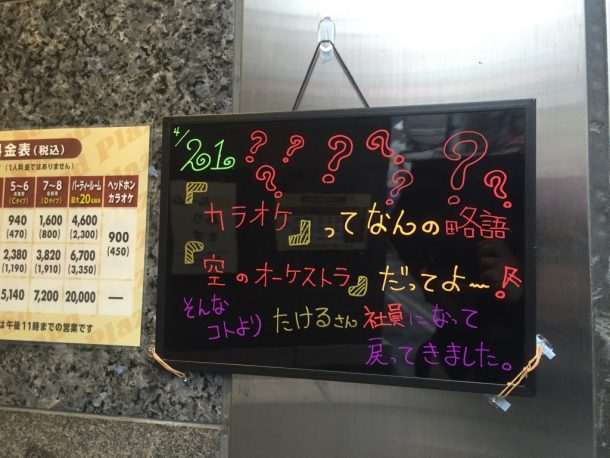 金表(税込)
(1人料金ではありません)
5~6
(Cタイプ)
7~8
(Dタイプ)
パーティールーム
最大20名様用
ヘッドホン
カラオケ
940
(470)
1,600
(800)
4,600
(2,300)
900
(450)
2,380
(1,190)
3,820
(1,910)
6,700
(3,350)
5,140
7,200
20,000
—
は午後11時までの営業です
4/21 ? ? ? ? ? ? ? ?
『カラオケ』ってなんの略語
『空のオーケストラ』だってよ〜!
そんな
コトより たけるさん 社員になって
戻ってきました。